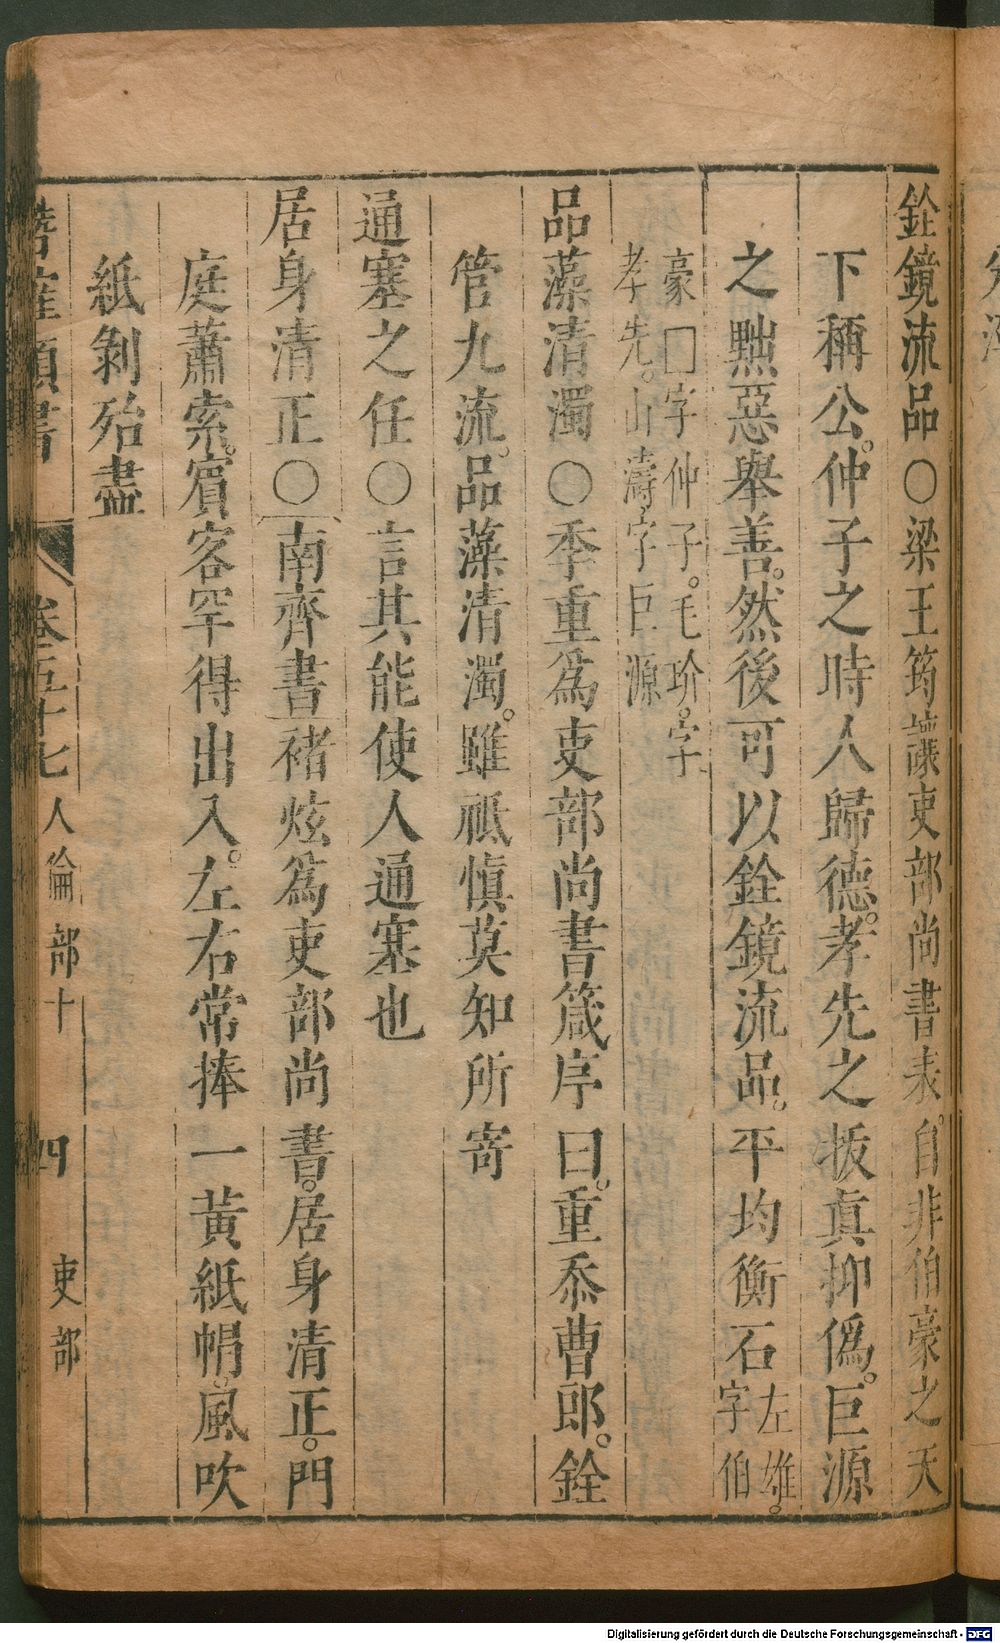 銓鏡流品○梁王筠讓吏部尚書表。自非伯豪之天
下稱公。仲子之時人歸德。孝先之拔眞抑僞。巨源
之黜惡舉善。然後可以銓鏡流品。平均衡石左雄。字伯
豪□字仲子。毛玠。字
孝先。山濤。字巨源
品藻清濁○季重爲吏部尚書箴序曰。重忝曹郎。銓
管九流。品藻清濁。雖祗愼莫知所寄
通塞之任○言其能使人通塞也
居身清正○南齊書褚炫爲吏部尚書。居身清正。門
庭蕭索。賓客罕得出入。左右常捧一黃紙帽。風吹
紙剝殆盡
類書 卷五十七 人倫部十 四 吏部
Digitalisierung gefördert durch die Deutsche Forschungsgemeinschaft - DFG